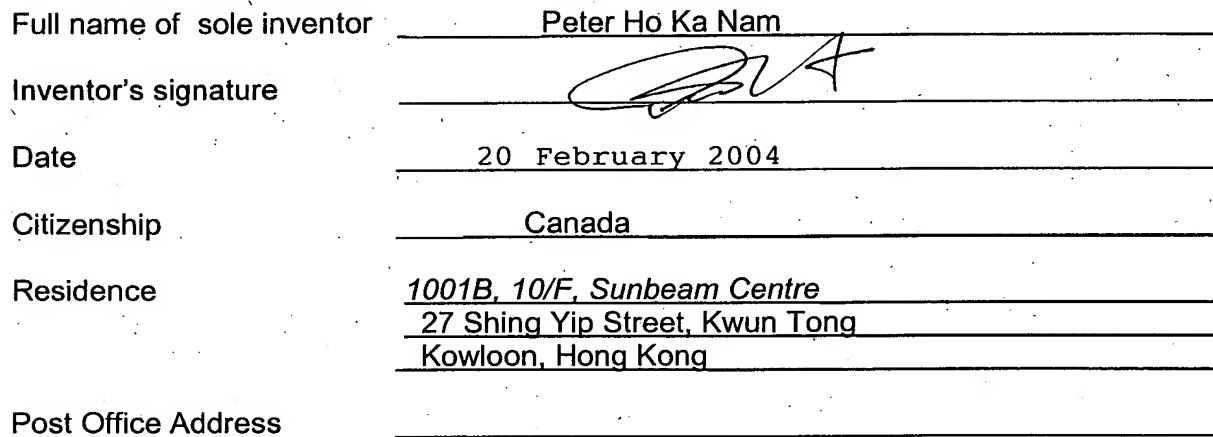 Full name of sole inventor Peter Ho Ka Nam
Inventor's signature
Date 20 February 2004
Citizenship Canada
Residence 1001B, 10/F, Sunbeam Centre
27 Shing Yip Street, Kwun Tong
Kowloon, Hong Kong
Post Office Address